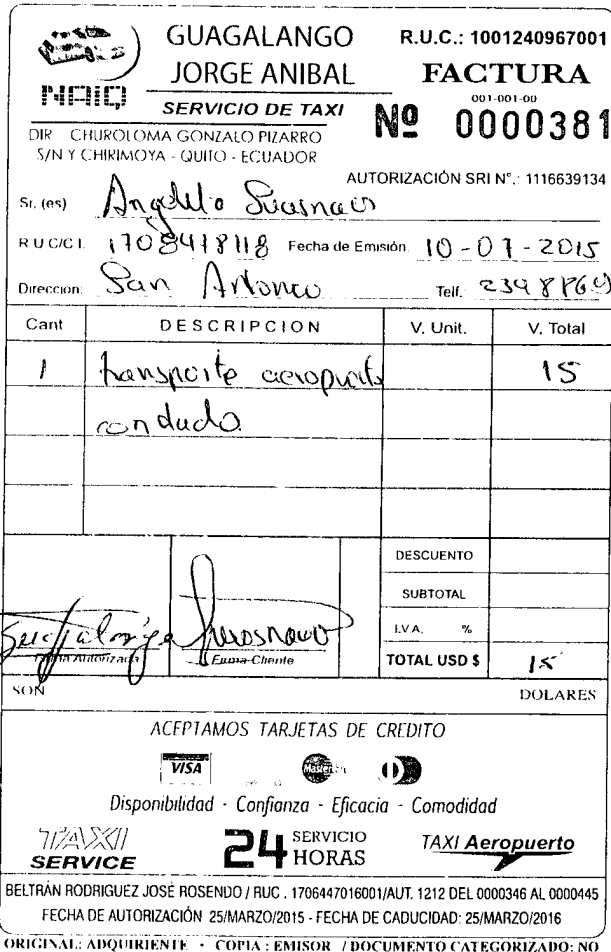 GUAGALANGO
JORGE ANIBAL
SERVICIO DE TAXI
NAIQ
DIR CHUROLOMA GONZALO PIZARRO
S/N Y CHIRIMOYA - QUITO - ECUADOR
R.U.C.: 1001240967001
FACTURA
001-001-00
Nº 0000381
AUTORIZACIÓN SRI Nº.: 1116639134
Sr. (es) Angelito
R U C/C I. 1708418118 Fecha de Emisión. 10-07-2015
Direccion: San Antonio Telf.
Cant DESCRIPCION V. Unit. V. Total
1 transporte aeropuerto 15
condado.
DESCUENTO
SUBTOTAL
I.V.A. %
TOTAL USD $ 15
Firma Autorizada Firma Cliente
SON DOLARES
ACEPTAMOS TARJETAS DE CREDITO
VISA MasterCard
Disponibilidad - Confianza - Eficacia - Comodidad
TAXI SERVICE
24 SERVICIO HORAS
TAXI Aeropuerto
BELTRÁN RODRIGUEZ JOSÉ ROSENDO / RUC . 1706447016001/AUT. 1212 DEL 0000346 AL 0000445
FECHA DE AUTORIZACIÓN 25/MARZO/2015 - FECHA DE CADUCIDAD: 25/MARZO/2016
ORIGINAL: ADQUIRIENTE · COPIA : EMISOR / DOCUMENTO CATEGORIZADO: NO